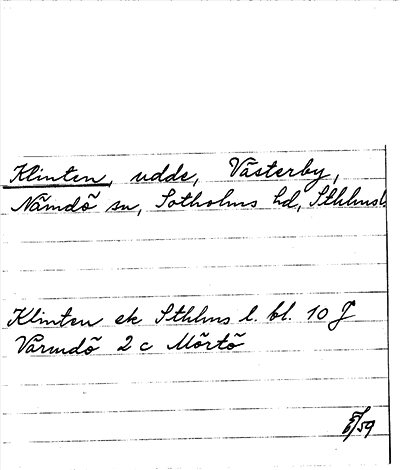 Klinten, udde, Västerby,
Nämdö sn, Sotholms hd, Sthlmsl
Klinten ek Sthlms l. bl. 10 J
Värmdö 2 c Mörtö
/59